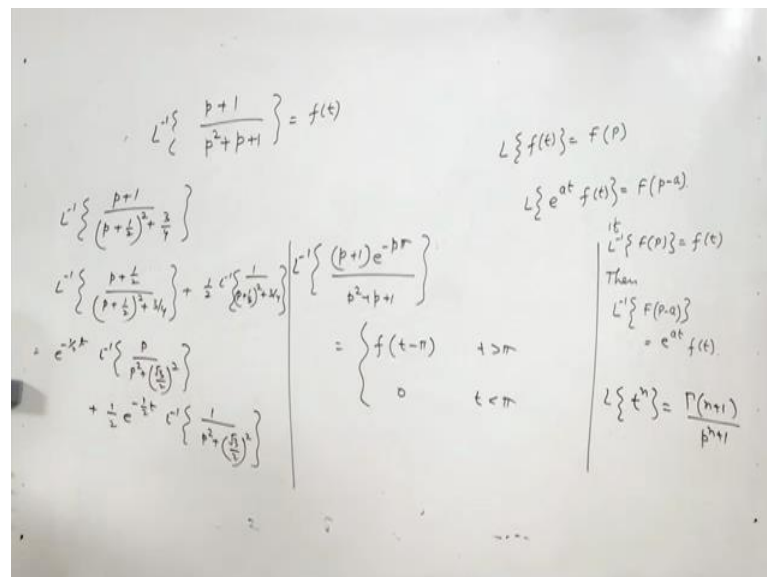 L⁻¹{ (p+1)/(p²+p+1) } = f(t)
L⁻¹{ (p+1)/((p+½)²+¾) }
L⁻¹{ (p+½)/((p+½)²+3/4) } + ½ L⁻¹{ 1/((p+½)²+3/4) }
= e^(-½t) L⁻¹{ p/(p²+(√3/2)²) }
+ ½ e^(-½t) L⁻¹{ 1/(p²+(√3/2)²) }
L⁻¹{ (p+1)e^(-pπ)/(p²+p+1) }
= { f(t-π) t>π
0 t<π
L{f(t)} = F(p)
L{e^(at) f(t)} = F(p-a).
If
L⁻¹{F(p)} = f(t)
Then
L⁻¹{F(p-a)}
= e^(at) f(t).
L{tⁿ} = Γ(n+1)/p^(n+1)